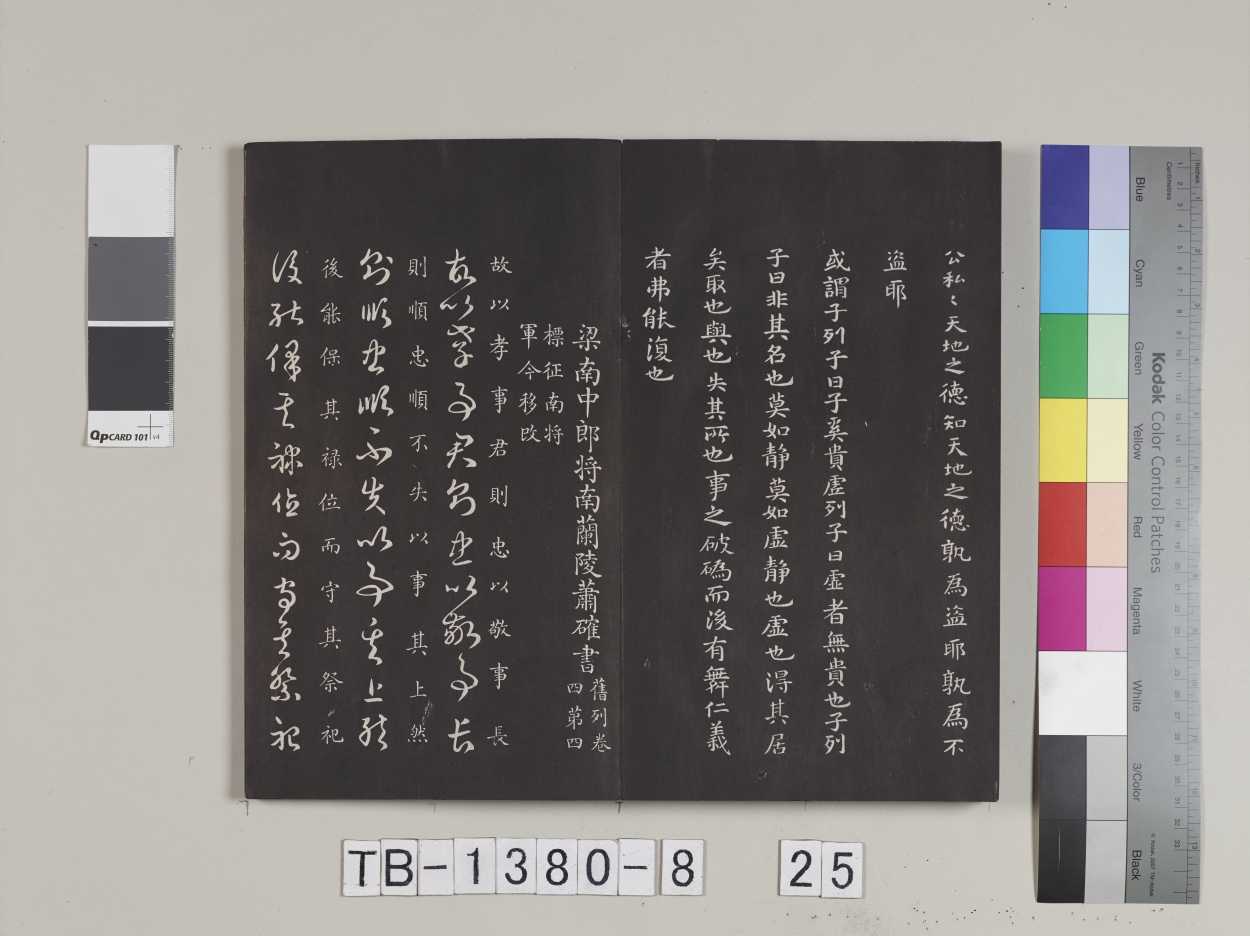 公私〻天地之德知天地之德孰為盜耶孰為不
盜耶
或謂子列子曰子奚貴虛列子曰虛者無貴也子列
子曰非其名也莫如靜莫如虛靜也虛也淂其居
矣取也與也失其所也事之破䃣而後有舞仁義
者弗能復也
梁南中郎将南蘭陵蕭確書
舊列卷
四第四
標征南将
軍今移改
故以孝事君則忠以敬事長
故以孝事君則忠以敬事長
則順忠順不失以事其上然
則順忠順不失以事其上然
後能保其禄位而守其祭祀
後能保其禄位而守其祭祀
QPCARD 101 v4
Kodak Color Control Patches
Blue
Cyan
Green
Yellow
Red
Magenta
White
3/Color
Black
Inches
Centimetres
TB-1380-8 25